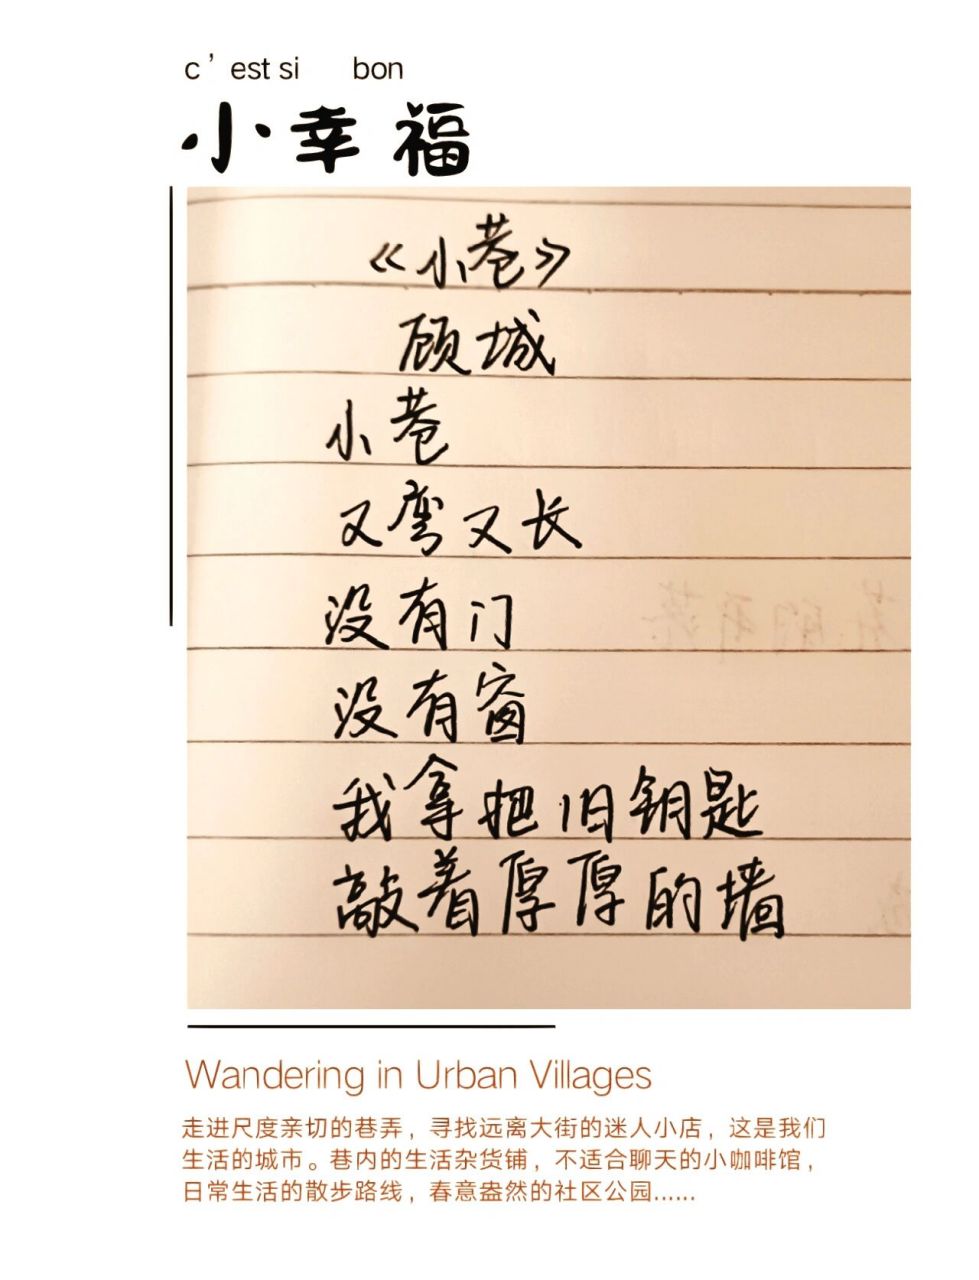 c'est si bon
小幸福
《小巷》
顾城
小巷
又弯又长
没有门
没有窗
我拿把旧钥匙
敲着厚厚的墙
Wandering in Urban Villages
走进尺度亲切的巷弄，寻找远离大街的迷人小店，这是我们
生活的城市。巷内的生活杂货铺，不适合聊天的小咖啡馆，
日常生活的散步路线，春意盎然的社区公园……